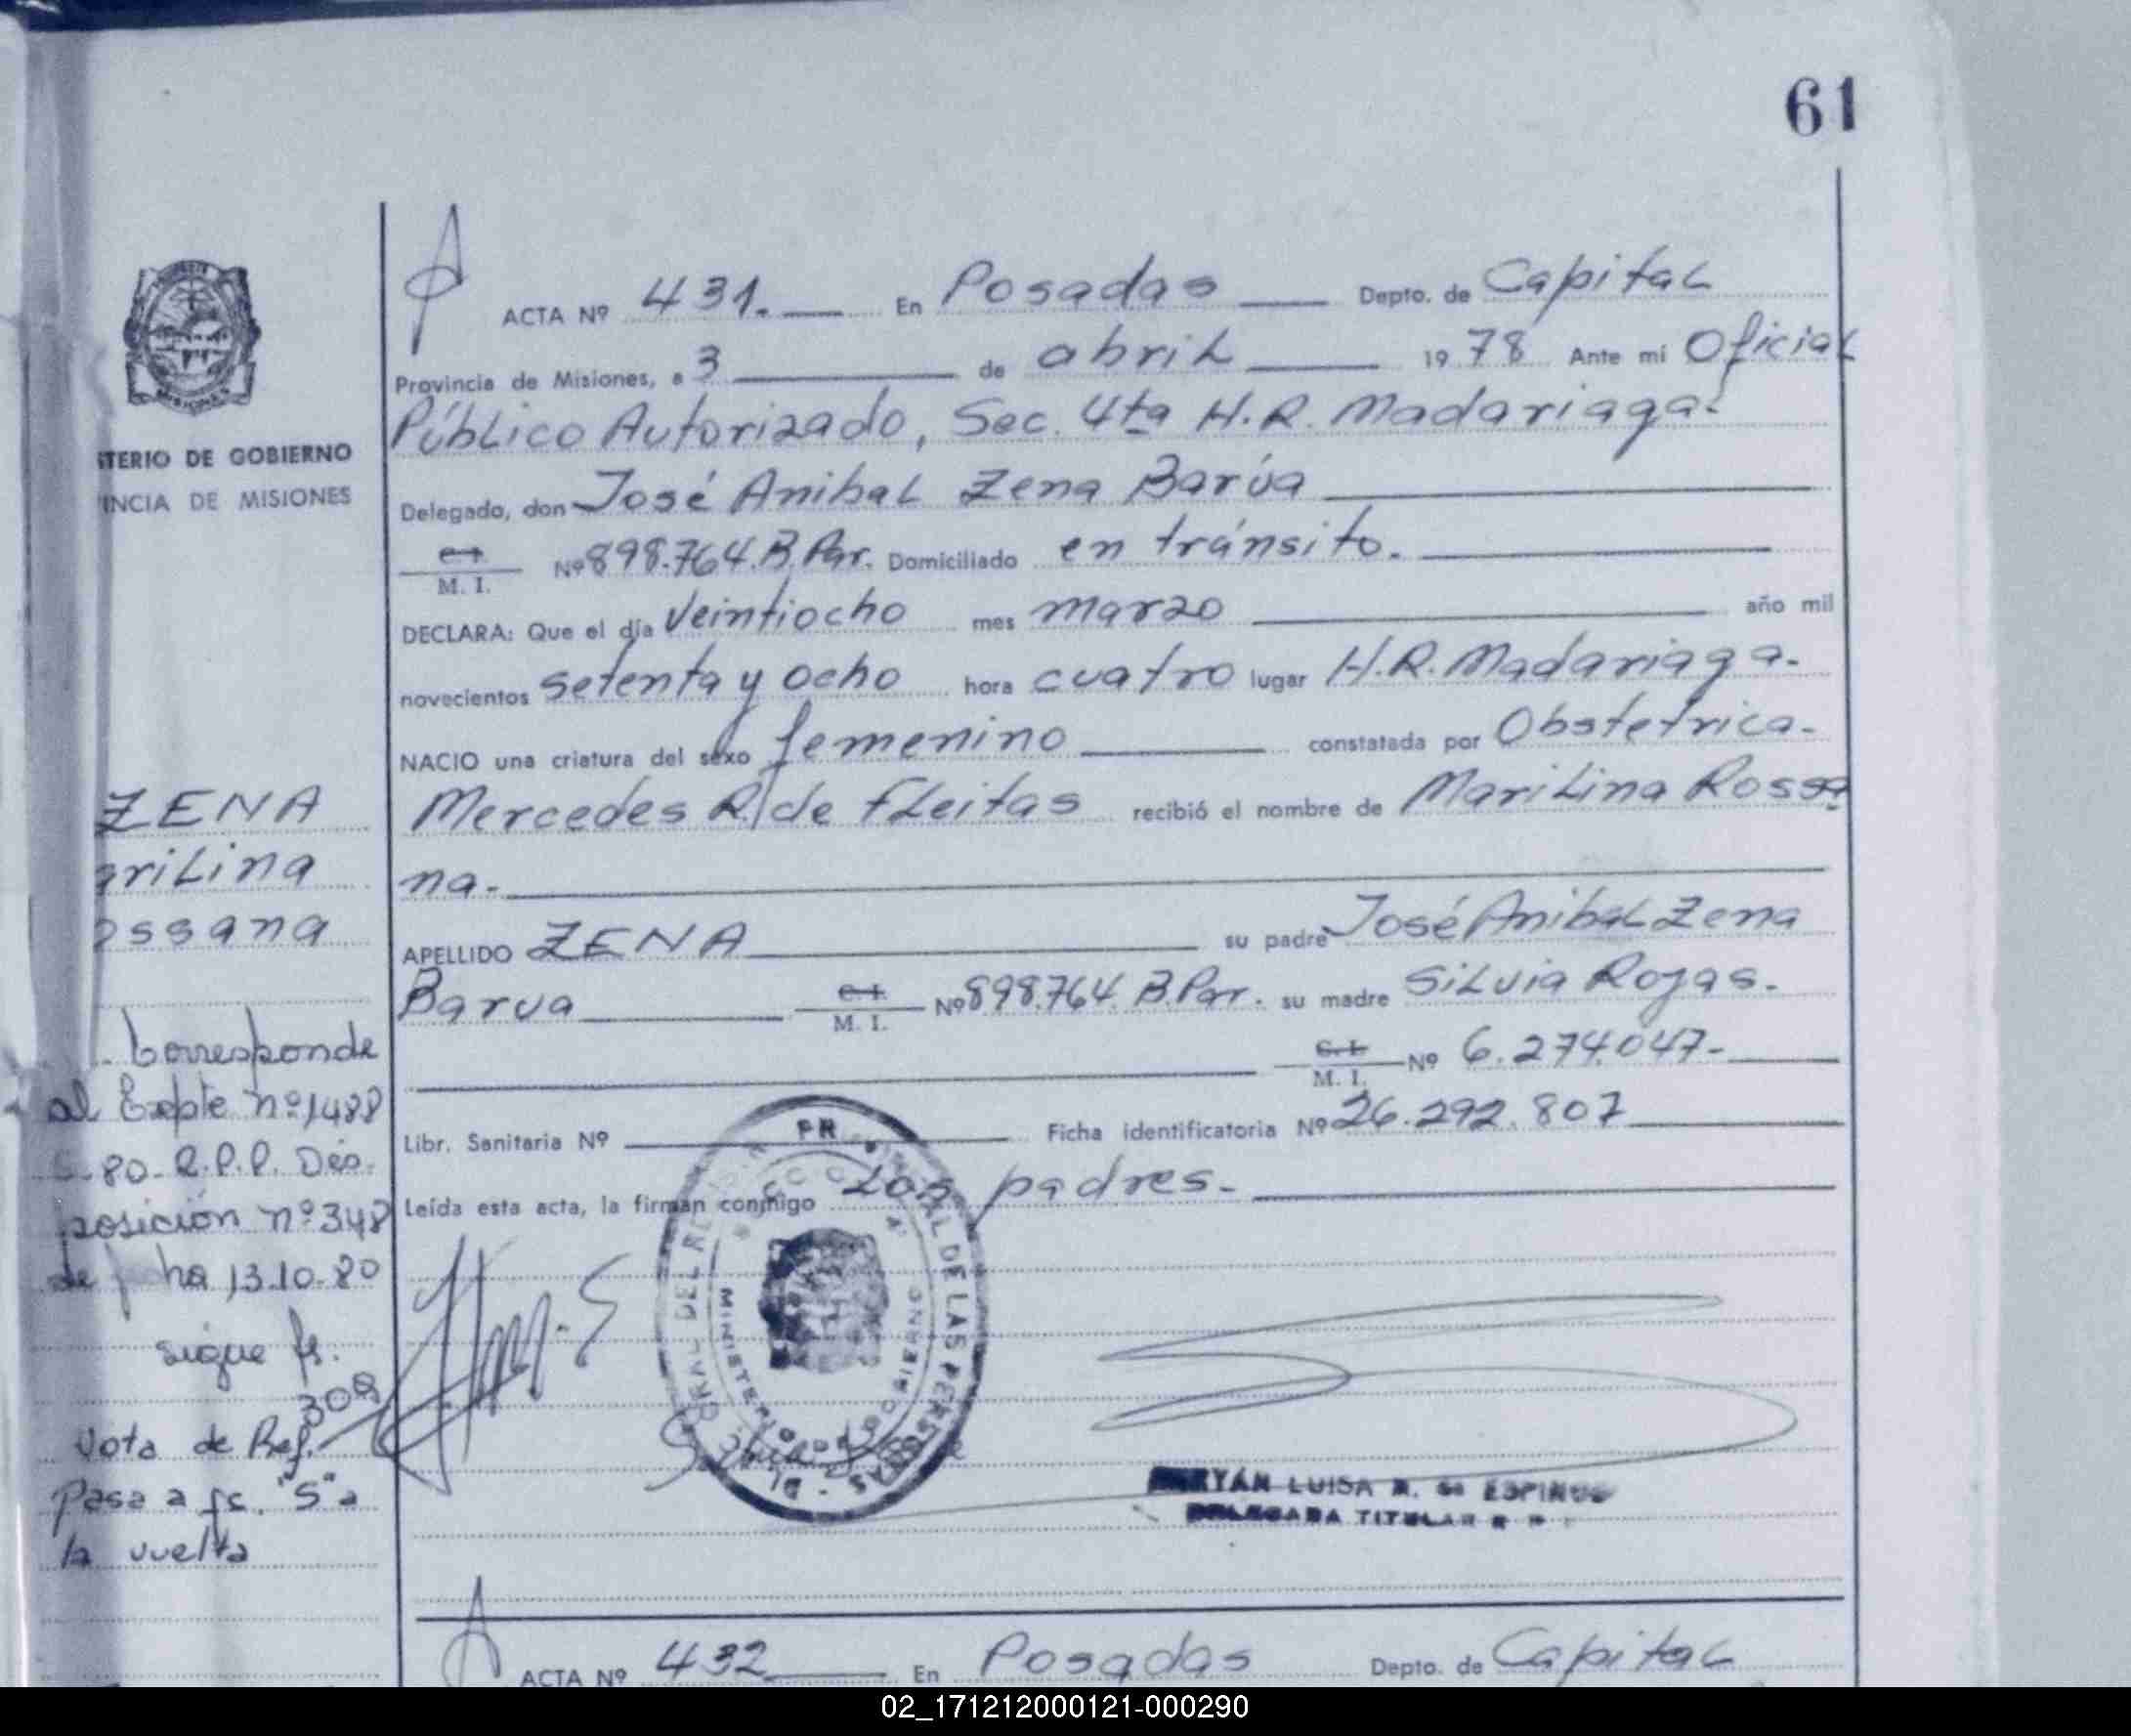 61
ACTA Nº 431. En Posadas Depto. de Capital
Provincia de Misiones, a 3 de abril 1978 Ante mí Oficial
Público Autorizado, Sec. 4ta H.R. Madariaga.
Delegado, don José Anibal Zena Barúa
C.I. M. I. Nº 898.764.B.Par. Domiciliado en tránsito.
DECLARA: Que el día Veintiocho mes marzo año mil
novecientos setenta y ocho hora cuatro lugar H.R. Madariaga.
NACIO una criatura del sexo femenino constatada por Obstetrica.
Mercedes R. de Fleitas recibió el nombre de Marilina Rossa
na.
APELLIDO ZENA su padre José Anibal Zena
Barua C.I. M. I. Nº 898.764.B.Par. su madre Silvia Rojas.
C.I. M. I. Nº 6.274.047-
Libr. Sanitaria Nº Ficha identificatoria Nº 26.292.807
Leída esta acta, la firman conmigo Los padres.
STERIO DE GOBIERNO
INCIA DE MISIONES
MISIONES
ZENA
arilina
ossana
Corresponde
al Expte nº 1488
80-R.P.P. Dis.
posición nº 348
de fecha 13.10.80
sigue fs.
308
Nota de Ref.
Pasa a fs. "S" a
la vuelta
DE LAS PERSONAS
MINISTERIO DE GOBIERNO
LUISA R. de ESPINOS
DELEGADA TITULAR
ACTA Nº 432 En Posadas Depto. de Capital
02_171212000121-000290